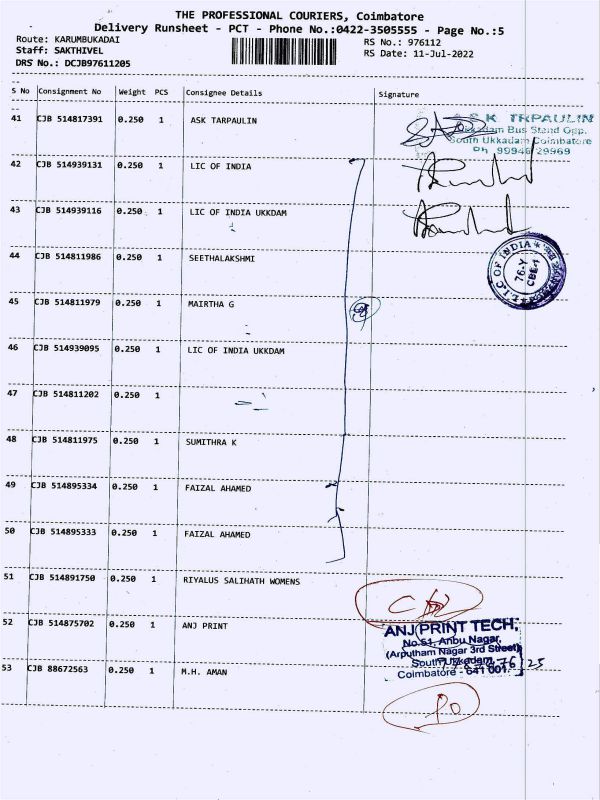 THE PROFESSIONAL COURIERS, Coimbatore
Delivery Runsheet - PCT - Phone No.:0422-3505555 - Page No.:5
Route: KARUMBUKADAI RS No.: 976112
Staff: SAKTHIVEL RS Date: 11-Jul-2022
DRS No.: DCJB97611205
S No Consignment No Weight PCS Consignee Details Signature
41 CJB 514817391 0.250 1 ASK TARPAULIN
S.K. TRPAULIN
Ukkadam Bus Stand Opp.
South Ukkadam Coimbatore
Ph 99946 29969
42 CJB 514939131 0.250 1 LIC OF INDIA
43 CJB 514939116 0.250 1 LIC OF INDIA UKKDAM
L.I.C OF INDIA
76-Y
CBE-1
44 CJB 514811986 0.250 1 SEETHALAKSHMI
45 CJB 514811979 0.250 1 MAIRTHA G
46 CJB 514939095 0.250 1 LIC OF INDIA UKKDAM
47 CJB 514811202 0.250 1
48 CJB 514811975 0.250 1 SUMITHRA K
49 CJB 514895334 0.250 1 FAIZAL AHAMED
50 CJB 514895333 0.250 1 FAIZAL AHAMED
51 CJB 514891750 0.250 1 RIYALUS SALIHATH WOMENS
52 CJB 514875702 0.250 1 ANJ PRINT
ANJ PRINT TECH,
No.51, Anbu Nagar,
(Arputham Nagar 3rd Street)
South Ukkadam,
Coimbatore - 641 001.
53 CJB 88672563 0.250 1 M.H. AMAN